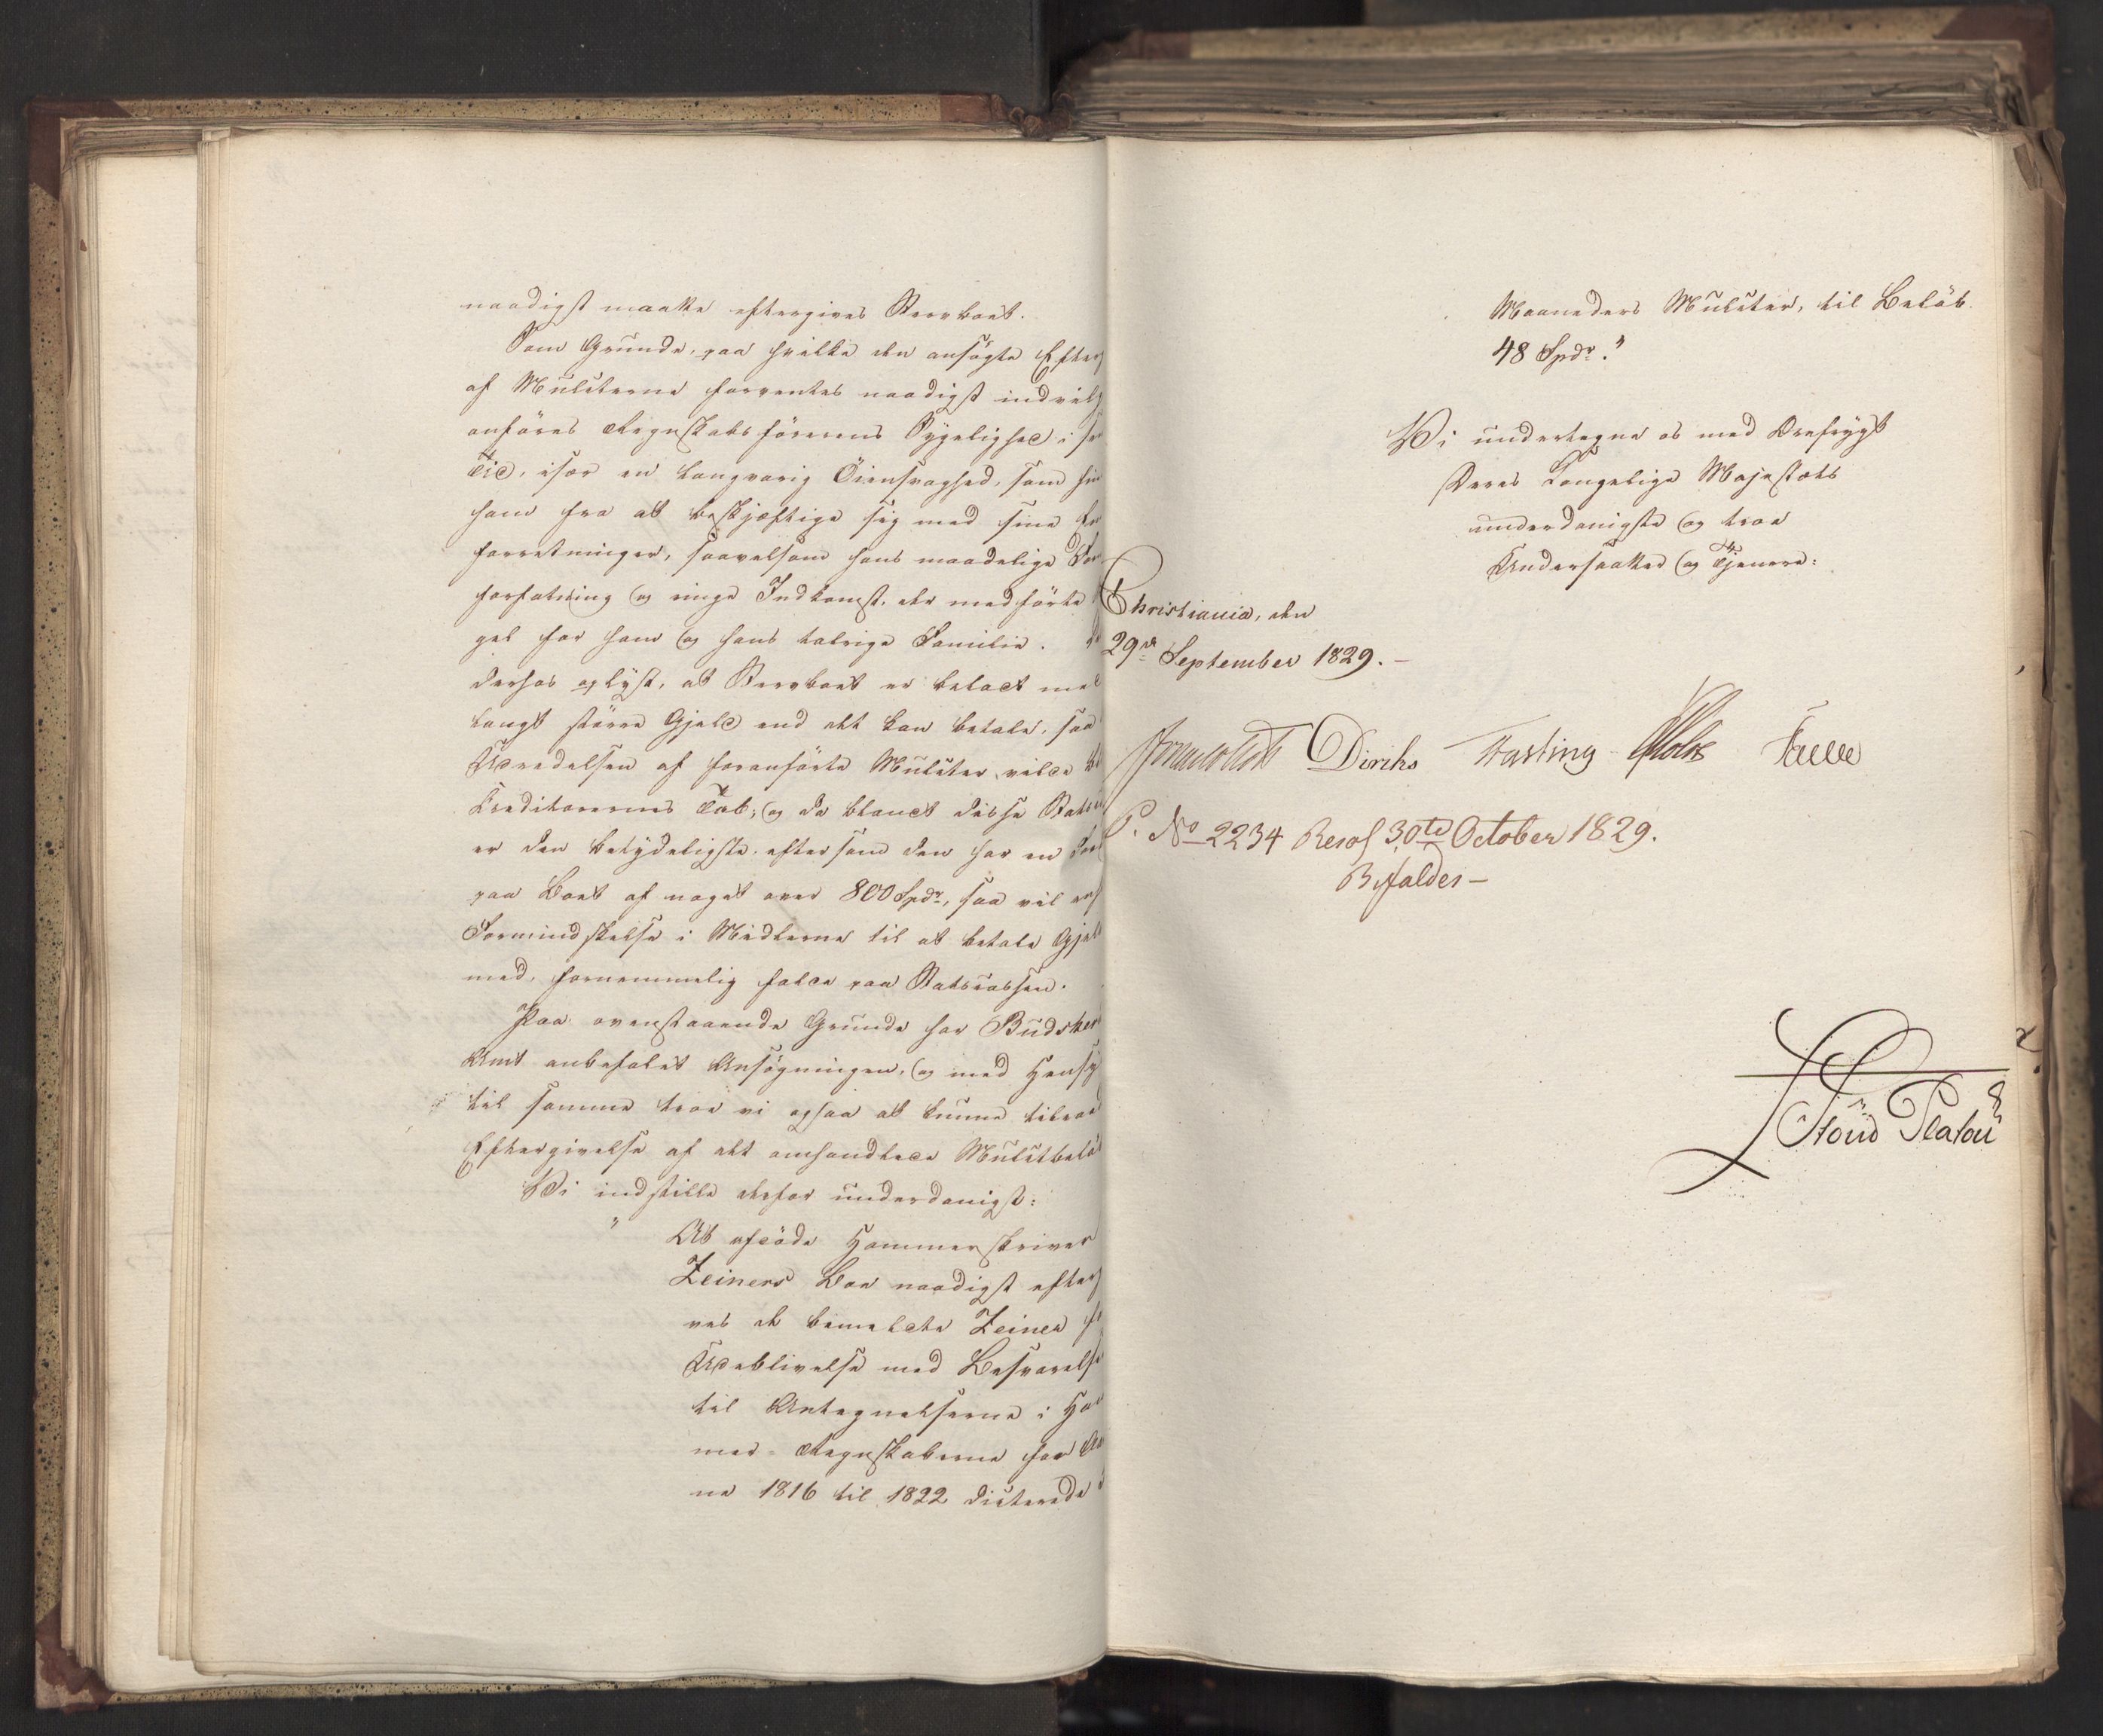 naadigst maatte eftergives Stervboet.
Som Grunde, paa hvilke den ansøgte Efterg
af Mulcterne forventes naadigst indvilg
anføres Regnskabsførerens Sygelighed i se
Tid, især en langvarig Øiensvaghed, som hin
ham fra at beskjæftige sig med sine
forretninger, saavelsom hans maadelige For
forfatning og ringe Indkomst, der medførte
gel for ham og hans talrige Familie.
derhos oplyst, at Stervboet er belagt med
langt større Gjeld end det kan betale, saa
Udredelsen af foranførte Mulcter vilde
Creditorernes Tab; og da blandt disse Stats
er den betydeligste, eftersom den har en For
paa Boet af noget over 800 Spdr, saa vil
Formindskelse i Midlerne til at betale Gjeld
med, fornemmelig falde paa Statscassen.
Paa ovenstaaende Grunde har Budsker
Amt anbefalet Ansøgningen, og med Hensy
til samme troe vi ogsaa at kunne tilraad
Eftergivelse af det omhandlede Mulctbelø
Vi indstille derfor underdanigst:
" At afdøde Hammerskriver
Zeiners Boe naadigst efterg
ves de bemeldte Zeiner fo
Udeblivelse med Besvarelse
til Antegnelserne i Ham
mer-Regnskaberne for Aa
ne 1816 til 1822 dicterede
Maaneders Mulcter, til Beløb
48 Spdr."
Vi undertegne os med Ærefrygt
Deres Kongelige Majestæts
underdanigste og troe
Undersaatter og Tjenere:
Christiania, den
29de September 1829.-
Diriks Fasting Holst
P. No 2234 Resol 30te October 1829.
Bifaldes-
Stoud Platou